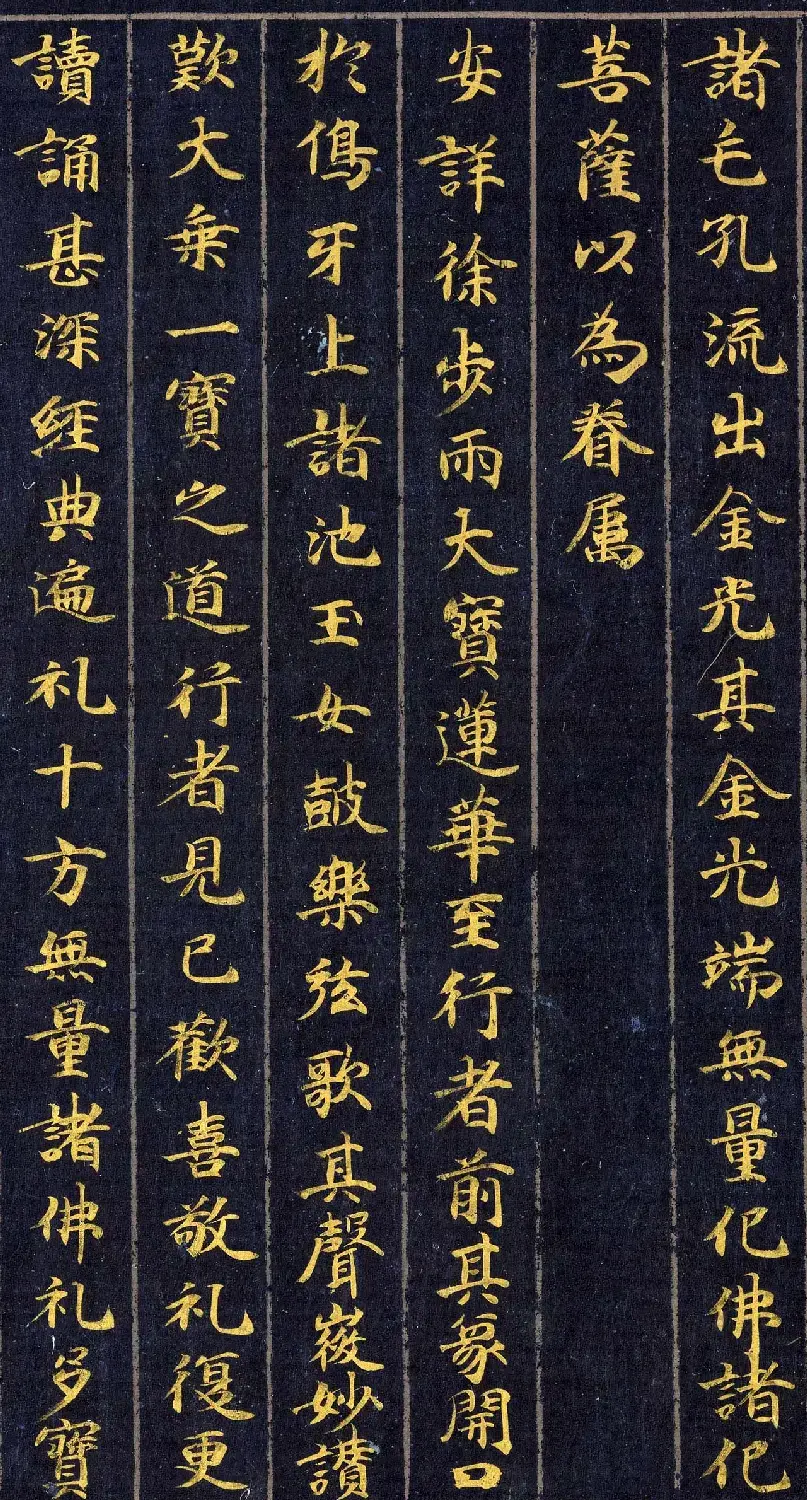 諸毛孔流出金光其金光端無量化佛諸化
菩薩以為眷属
安詳徐歩雨大寶蓮華至行者前其象開口
於傷牙上諸池玉女皷樂弦歌其聲㣲妙讃
歎大乗一寶之道行者見已歡喜敬礼復更
讀誦甚深經典遍礼十方無量諸佛礼多寶